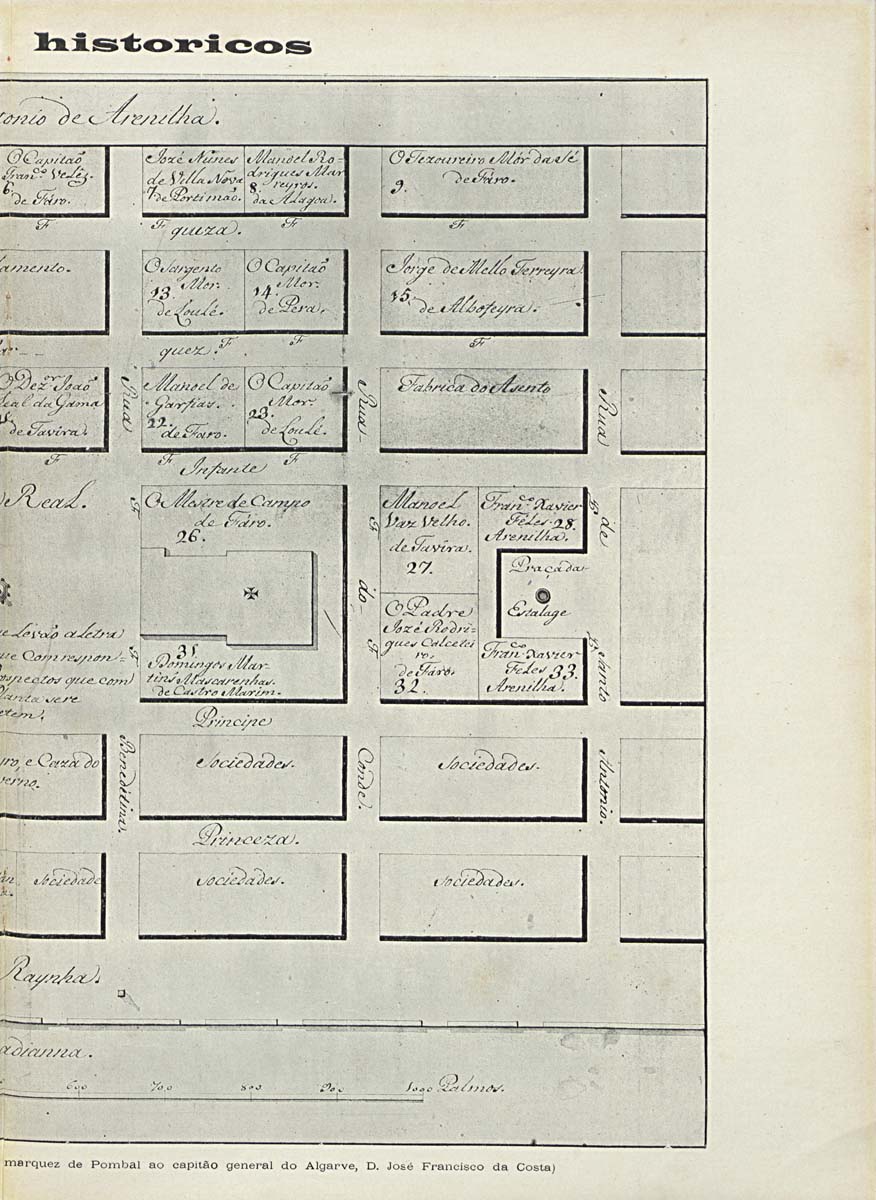 historicos
tonio de Arenilha.
O Capitaõ
Fran.co Velêz.
6.
de Fáro.
Jozé Nunes
de Villa Nova
7. de Portimaõ.
Manoel Ro=
driques Mar
reyros.
8.
da Alagoa.
O Tezoureiro Mór da Sé
de Fáro.
9.
F
F quiza. F
F
amento.
O Sargento
Mor.
13.
de Loulé.
O Capitaõ
14. Mor.
de Pera.
Jorge de Mello Ferreyra
15.
de Albofeyra.
quez. F
F
F
O Dez.or Joaõ
Leal da Gama
de Tavira.
Rua
Manoel de
Garfias.
22.
de Faro.
O Capitaõ
Mor
23.
de Loulé.
Rua
Fabrica do Asento
Rua
F
F
F
Infante
Real.
F
O Mestre de Campo
de Fáro.
26.
Manoel
Vaz Velho.
de Tavira.
27.
Fran.co Xavier
Féles 28.
Arenilha.
F
de
F
Praça da
Estalage
do
O Padre
Jozé Rodri=
gues Calcetei
ro.
de Fáro.
32.
F
Fran.co Xavier
Féles 33.
Arenilha.
F
Santo
e Lovaõ a Letra
ue Comrespon=
ospectos que com
Planta se re
etem.
F
31.
Domingos Mar=
tins Mascarenhas.
de Castro Marim.
Principe
ro, e Caza do
verno.
Beneditina.
Sociedades.
Conde.
Sociedades.
Antonio.
Princeza.
Sociedade
Sociedades.
Sociedades.
Raynha.
adianna.
600 700 800 900 1000 Palmos.
marquez de Pombal ao capitão general do Algarve, D. José Francisco da Costa)